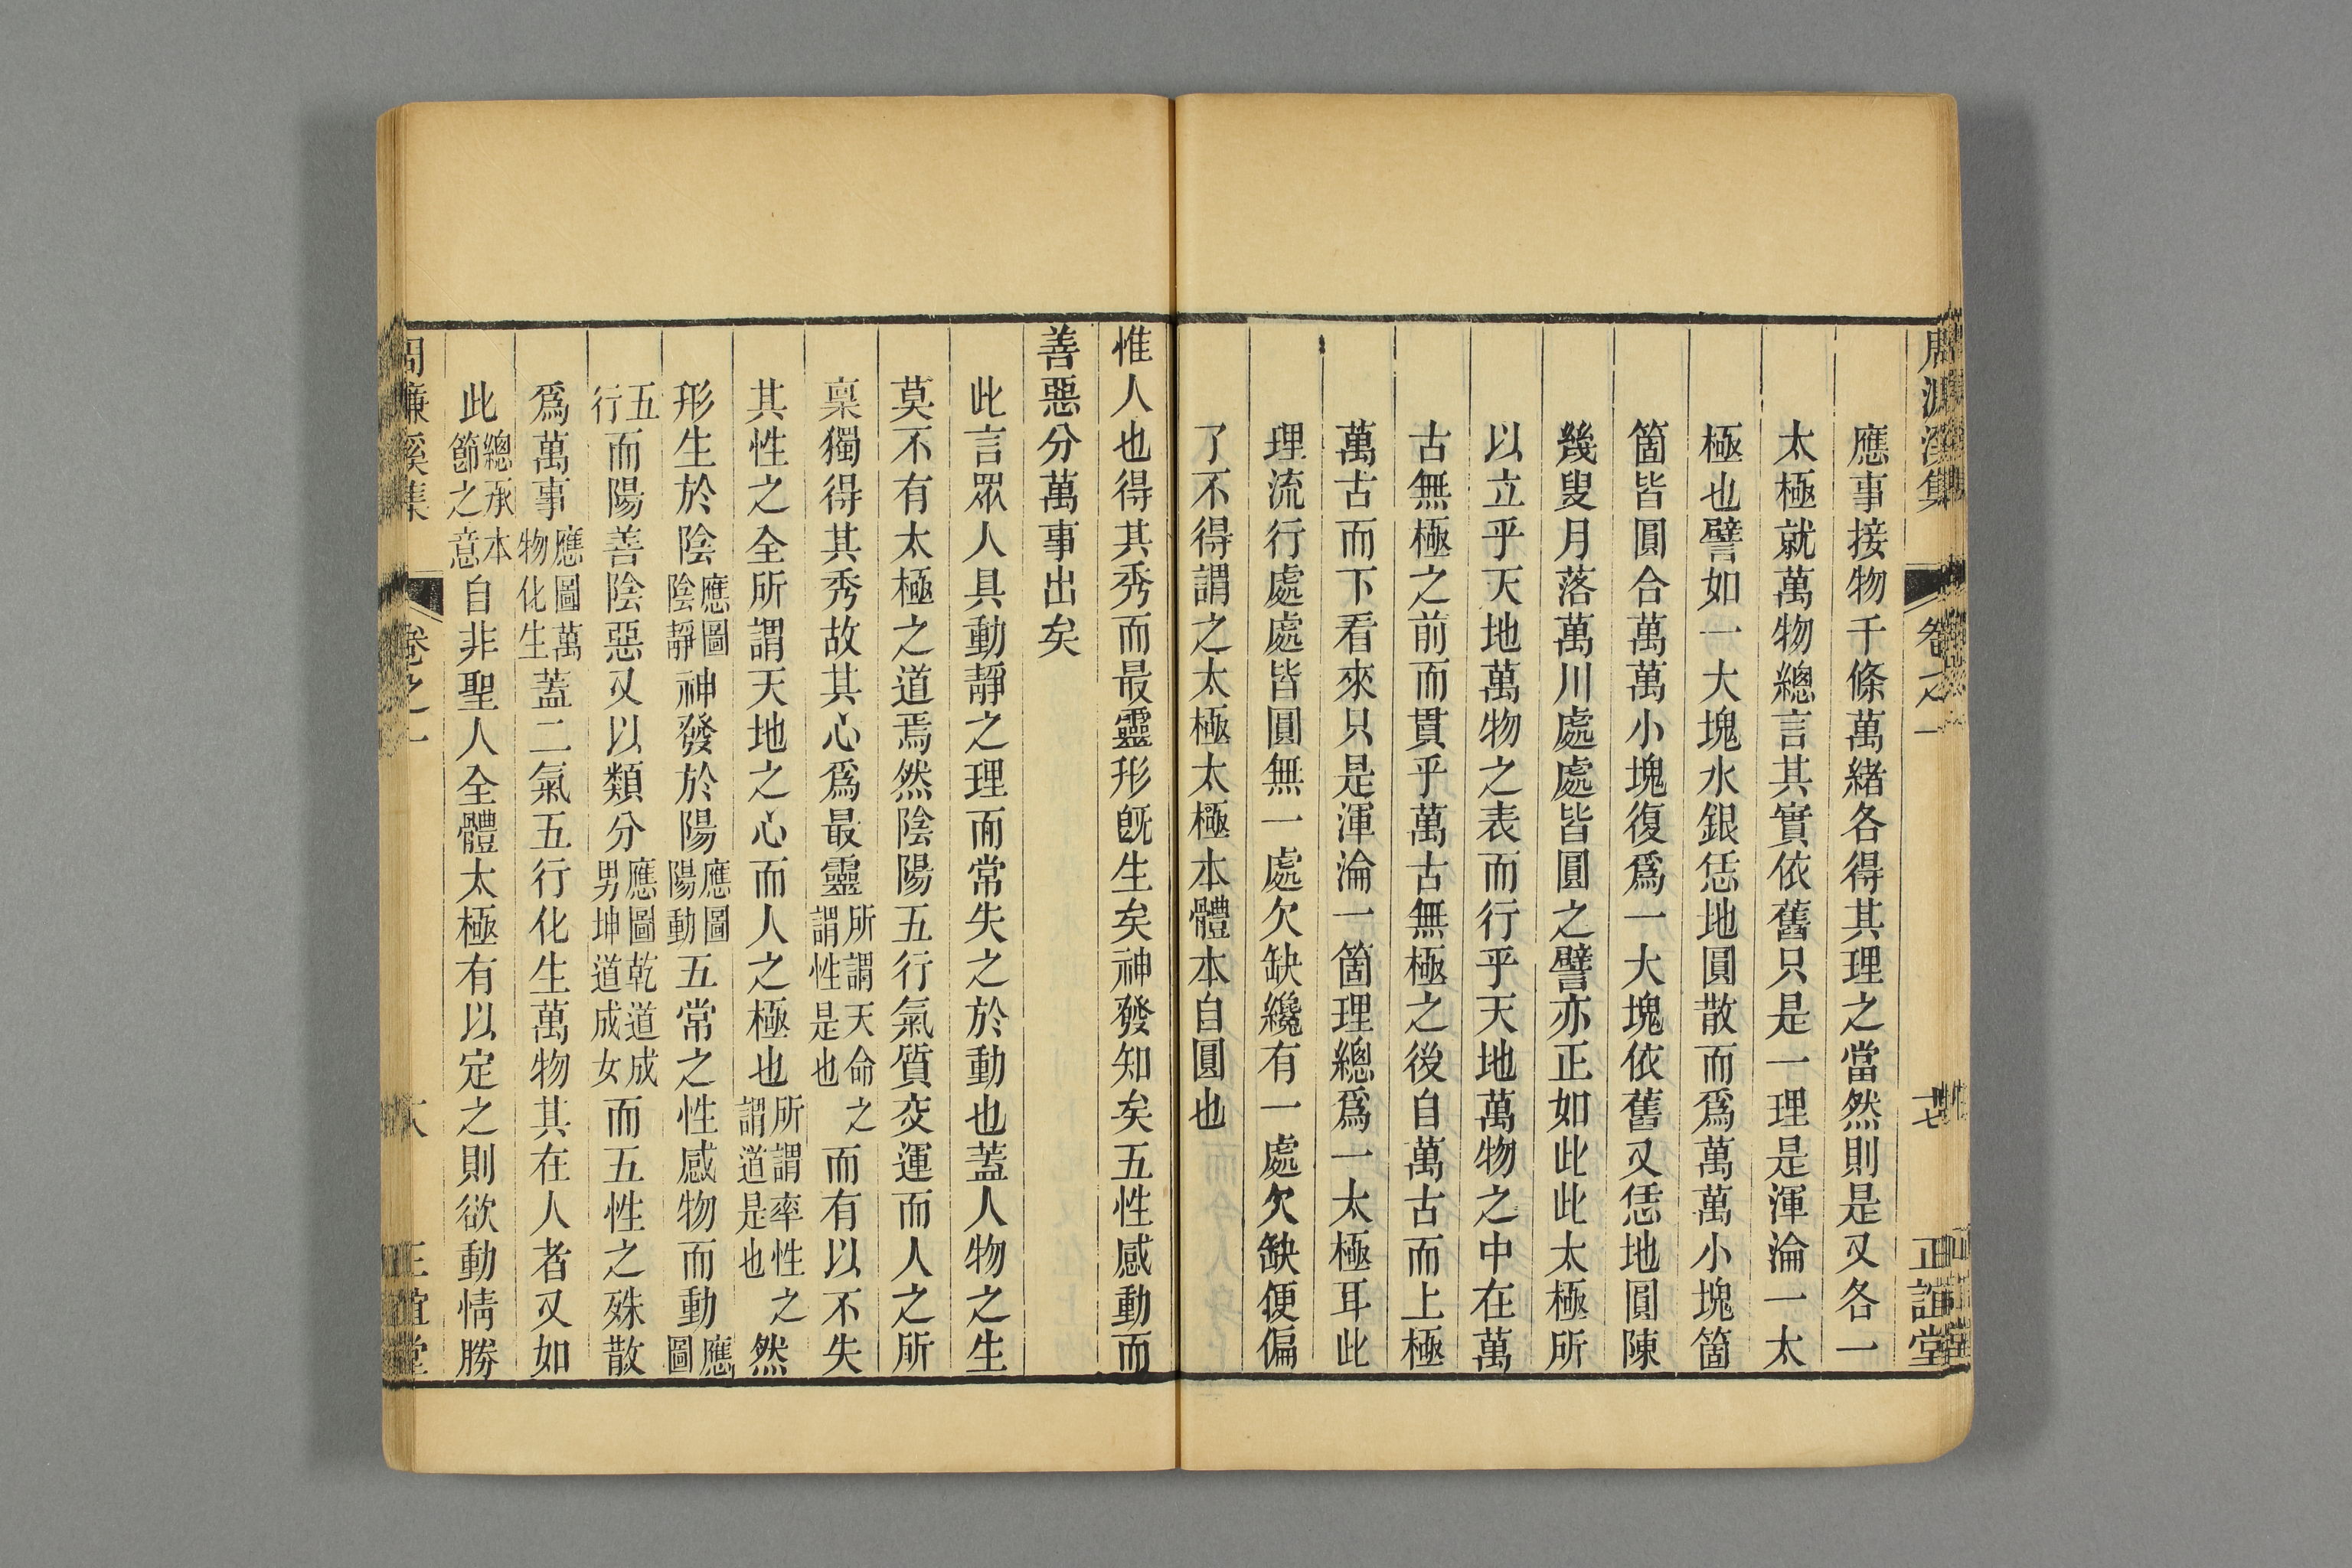 周濂溪集 卷之一 十七 正誼堂
應事接物千條萬緒各得其理之當然則是又各一
太極就萬物總言其實依舊只是一理是渾淪一太
極也譬如一大塊水銀恁地圓散而爲萬萬小塊箇
箇皆圓合萬萬小塊復爲一大塊依舊又恁地圓陳
幾叟月落萬川處處皆圓之譬亦正如此此太極所
以立乎天地萬物之表而行乎天地萬物之中在萬
古無極之前而貫乎萬古無極之後自萬古而上極
萬古而下看來只是渾淪一箇理總爲一太極耳此
理流行處處皆圓無一處欠缺纔有一處欠缺便偏
了不得謂之太極太極本體本自圓也
惟人也得其秀而最靈形既生矣神發知矣五性感動而
善惡分萬事出矣
此言眾人具動靜之理而常失之於動也蓋人物之生
莫不有太極之道焉然陰陽五行氣質交運而人之所
稟獨得其秀故其心爲最靈所謂天命之謂性是也而有以不失
其性之全所謂天地之心而人之極也所謂率性之謂道是也然
形生於陰應圖陰靜神發於陽應圖陽動五常之性感物而動應圖
五行而陽善陰惡又以類分應圖乾道成男坤道成女而五性之殊散
爲萬事應圖萬物化生蓋二氣五行化生萬物其在人者又如
此總承本節之意自非聖人全體太極有以定之則欲動情勝
周濂溪集 卷之一 正誼堂